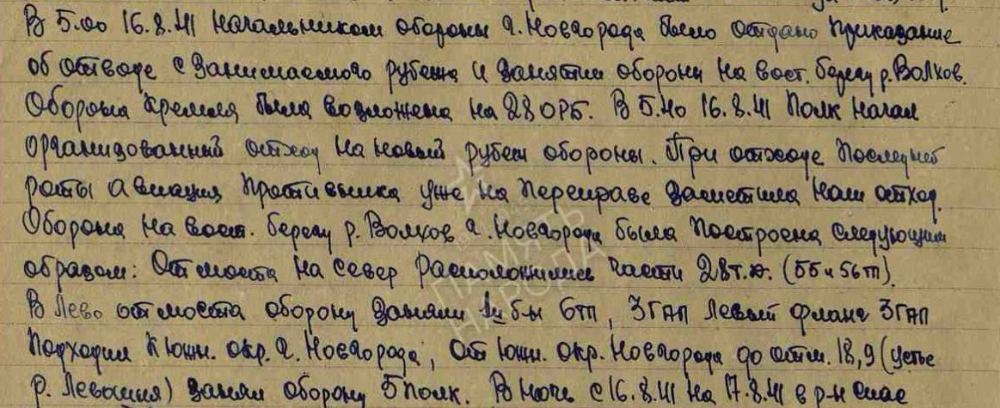 В 5.00 16.8.41 начальником обороны г. Новгорода было отдано приказание
об отводе с занимаемого рубежа и занятии обороны на вост. берегу р. Волхов.
Оборона кремля была возложена на 28 ОРБ. В 5.40 16.8.41 Полк начал
организованный отход на новый рубеж обороны. При отходе последней
роты авиация противника уже на переправе заметила наш отход.
Оборона на вост. берегу р. Волхов г. Новгорода была построена следующим
образом: От моста на север расположились части 28 т.д. (55 и 56 тп).
В лево от моста оборону заняли 1й б-н 6тп, 3 ГАП Левый фланг 3 ГАП
подходил к южн. окр. г. Новгорода, от южн. окр. Новгорода до отм. 18,9 (устье
р. Левошня) занял оборону 5 полк. В ночь с 16.8.41 на 17.8.41 в р-н Спас
ПАМЯТЬ
НАРОДА